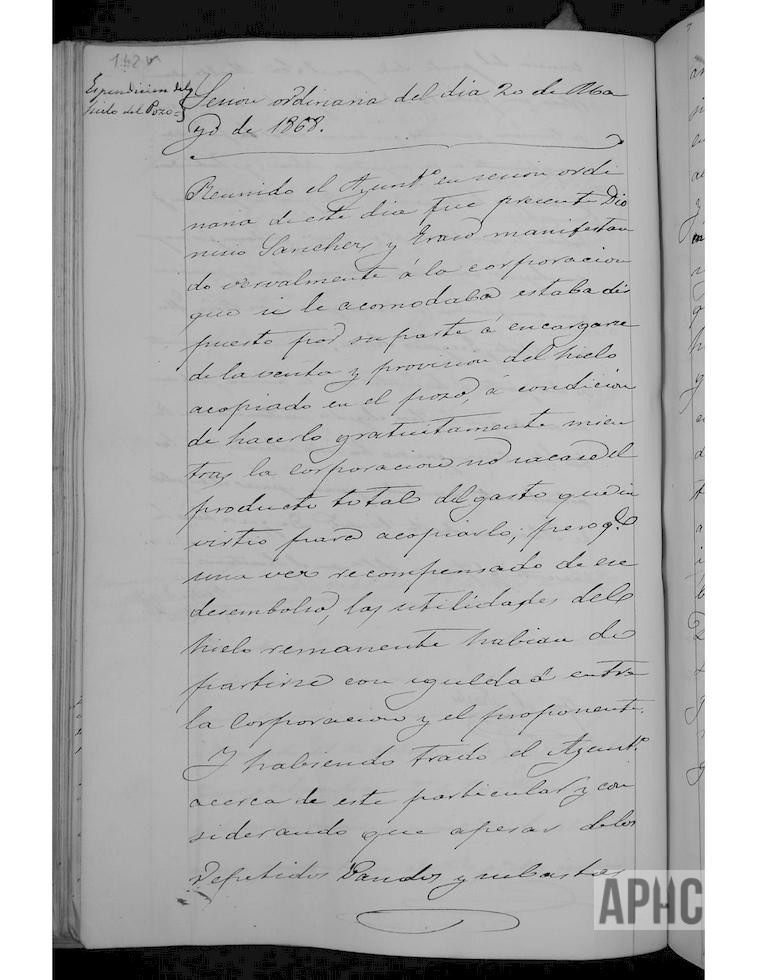 142 v
Espendicion del
hielo del Pozo=
Sesion ordinaria del dia 20 de Ma
yo de 1868.
Reunido el Ayuntº en sesion ordi
naria de este dia fue presente Dio
nisio Sanchez y Eraso manifestan
do vervalmente á la corporacion
que si le acomodaba estaba dis
puesto por su parte á encargarse
de la venta y provision del hielo
acopiado en el pozo, á condicion
de hacerlo gratuitamente mien
tras la corporacion no sacase el
producto total del gasto que in
virtio para acopiarlo; pero qe
una vez recompensado de ese
desembolso, las utilidades del
hielo remanente habian de
partirse con igueldad entre
la Corporacion y el proponente.
Y habiendo trado el Ayuntº
acerca de este particular y con
siderando que apesar de los
repetidos Bandos y subastas
APHC